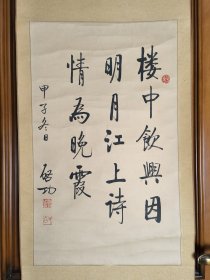 楼中飲興因
明月江上诗
情為晚霞
甲子冬日
启功